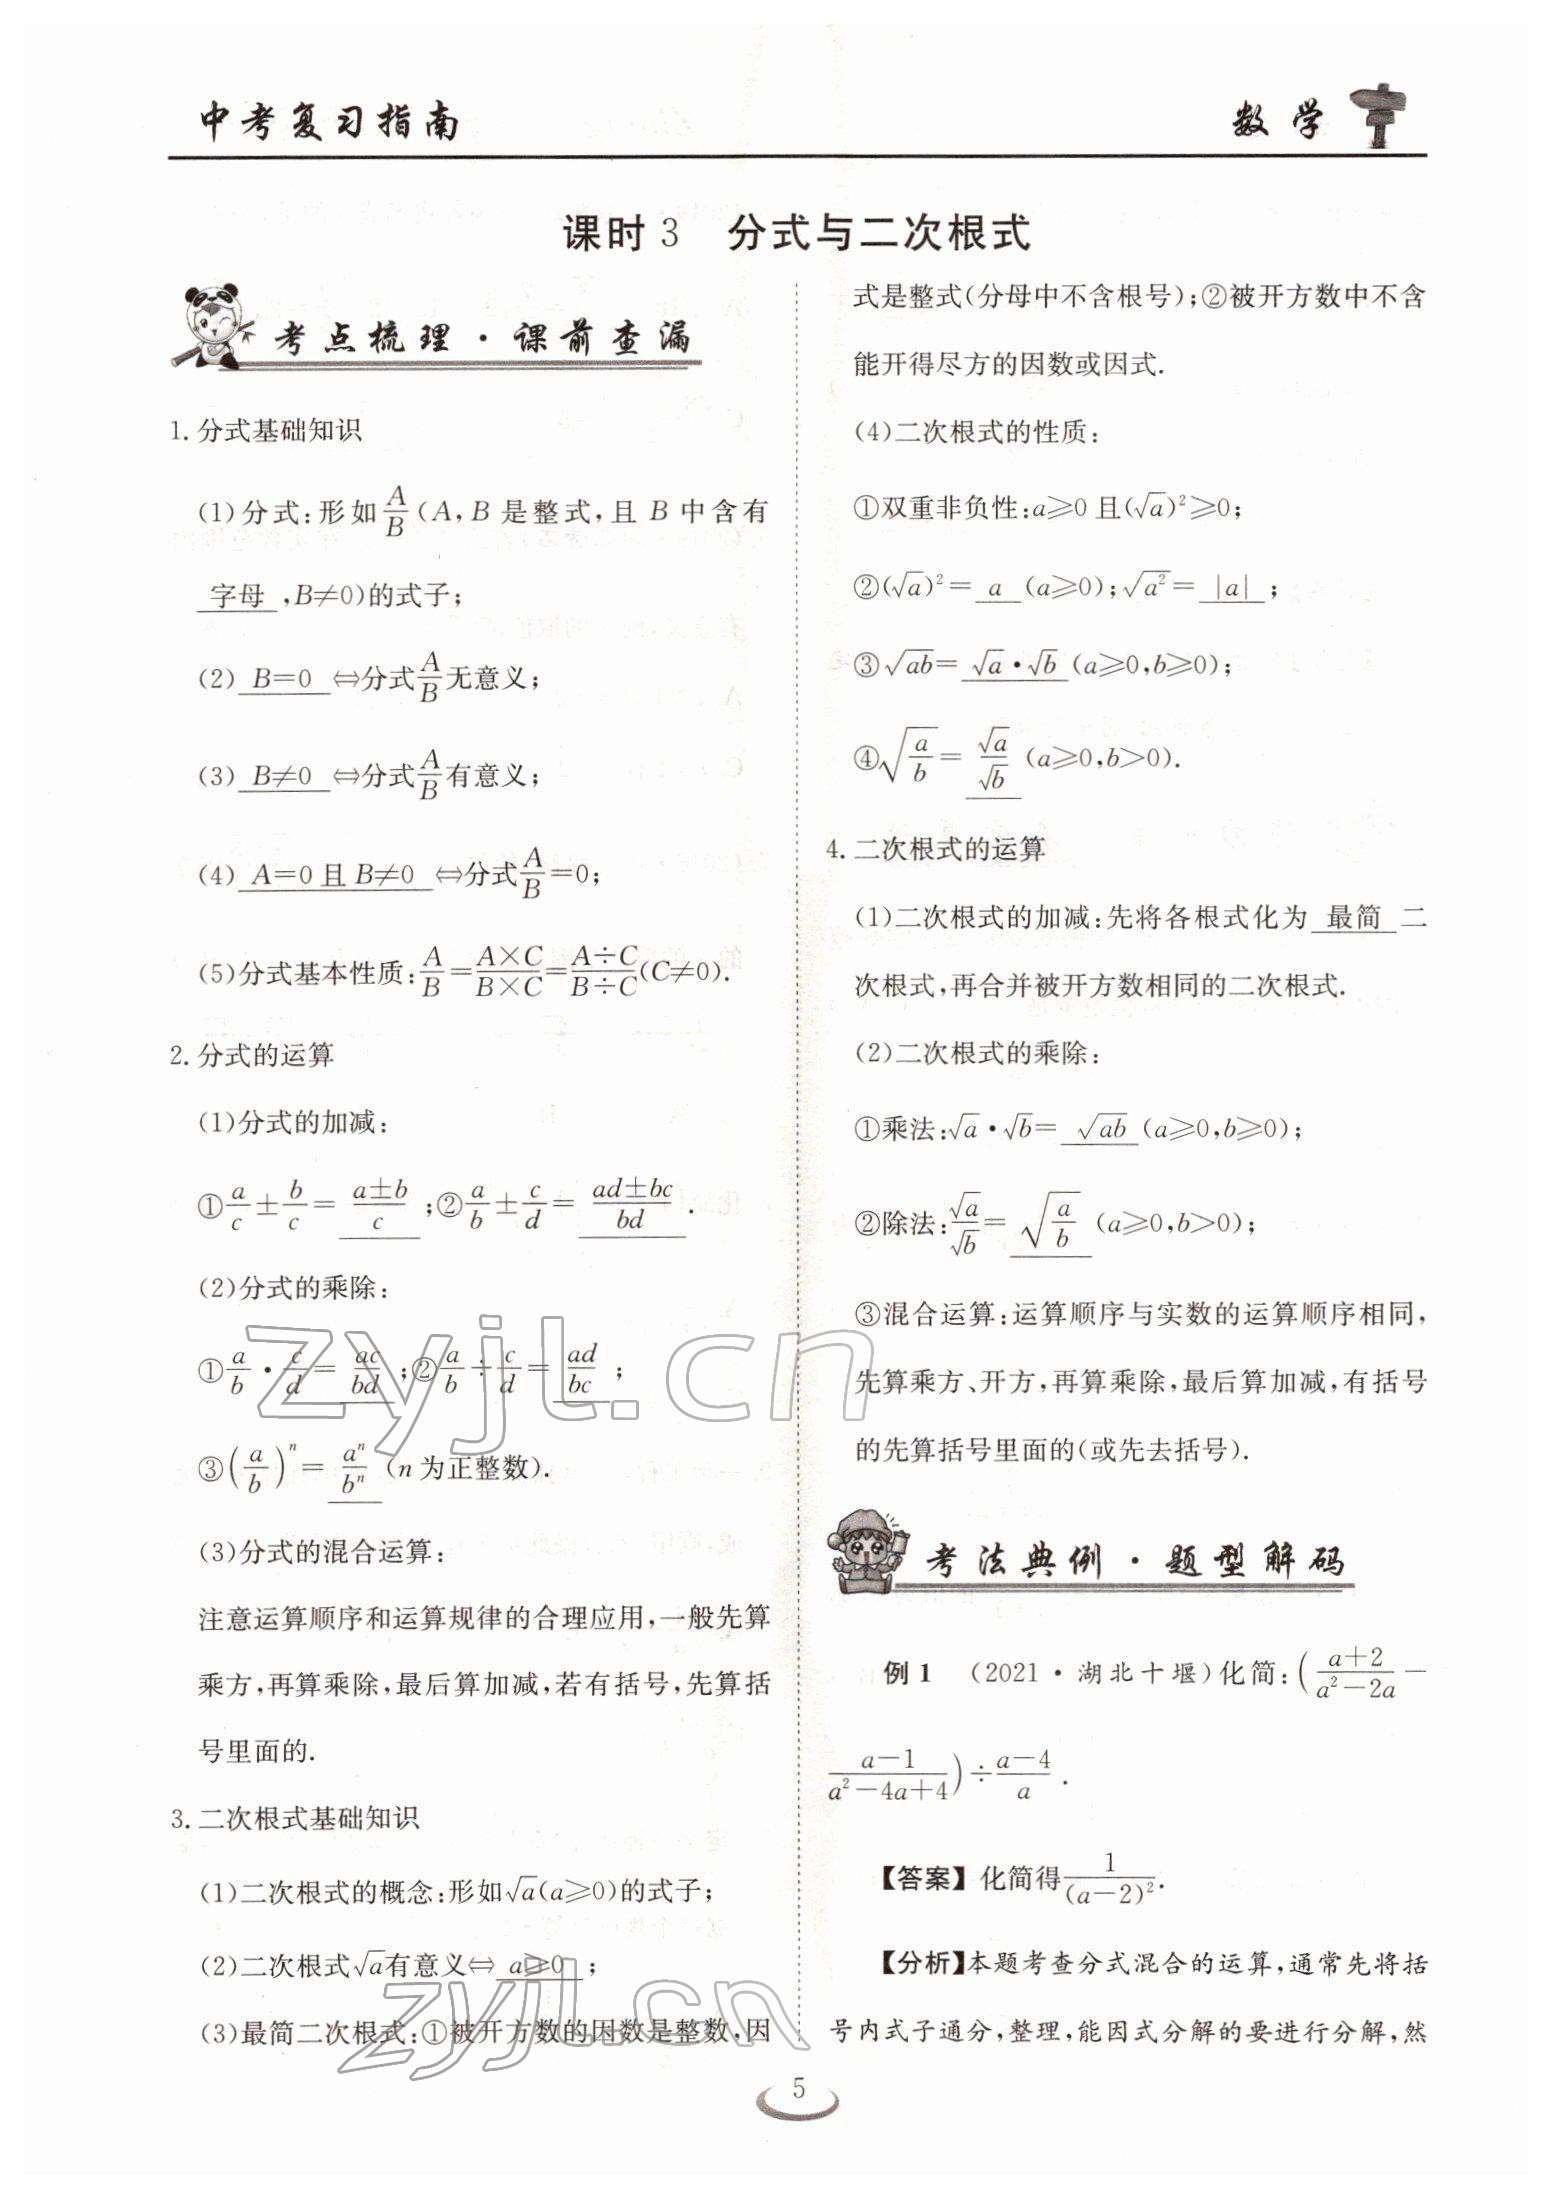 中考复习指南
数学
课时 3 分式与二次根式
考点梳理·课前查漏
1. 分式基础知识
(1)分式:形如A/B(A,B 是整式,且 B 中含有
字母,B≠0)的式子;
(2) B=0 ⇔分式A/B无意义;
(3) B≠0 ⇔分式A/B有意义;
(4) A=0 且 B≠0 ⇔分式A/B=0;
(5)分式基本性质:A/B=(A×C)/(B×C)=(A÷C)/(B÷C)(C≠0).
2. 分式的运算
(1)分式的加减:
①a/c±b/c= (a±b)/c ;②a/b±c/d= (ad±bc)/bd .
(2)分式的乘除:
①a/b·c/d= ac/bd ;②a/b÷c/d= ad/bc ;
③(a/b)ⁿ= aⁿ/bⁿ (n 为正整数).
(3)分式的混合运算:
注意运算顺序和运算规律的合理应用,一般先算
乘方,再算乘除,最后算加减,若有括号,先算括
号里面的.
3. 二次根式基础知识
(1)二次根式的概念:形如√a(a≥0)的式子;
(2)二次根式√a有意义⇔ a≥0 ;
(3)最简二次根式:①被开方数的因数是整数,因
式是整式(分母中不含根号);②被开方数中不含
能开得尽方的因数或因式.
(4)二次根式的性质:
①双重非负性:a≥0 且(√a)²≥0;
②(√a)²= a (a≥0);√a²= |a| ;
③√ab= √a·√b (a≥0,b≥0);
④√(a/b)= √a/√b (a≥0,b>0).
4. 二次根式的运算
(1)二次根式的加减:先将各根式化为 最简 二
次根式,再合并被开方数相同的二次根式.
(2)二次根式的乘除:
①乘法:√a·√b= √ab (a≥0,b≥0);
②除法:√a/√b= √(a/b) (a≥0,b>0);
③混合运算:运算顺序与实数的运算顺序相同,
先算乘方、开方,再算乘除,最后算加减,有括号
的先算括号里面的(或先去括号).
考法典例·题型解码
例 1 (2021·湖北十堰)化简:((a+2)/(a²−2a)−
(a−1)/(a²−4a+4))÷(a−4)/a.
【答案】化简得1/(a−2)².
【分析】本题考查分式混合的运算,通常先将括
号内式子通分,整理,能因式分解的要进行分解,然
5
zyjl.cn
zyjl.cn